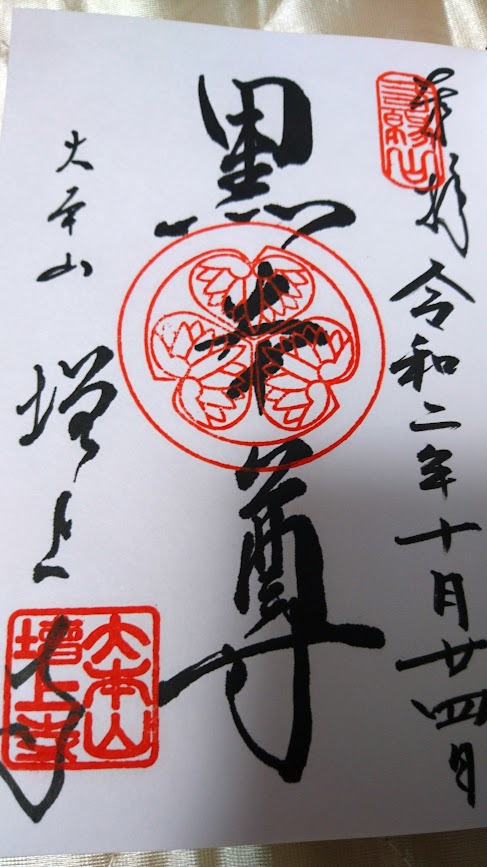 三緣山
奉拝 令和二年十月廿四日
黒本尊
大本山 増上寺
大本山
增上寺